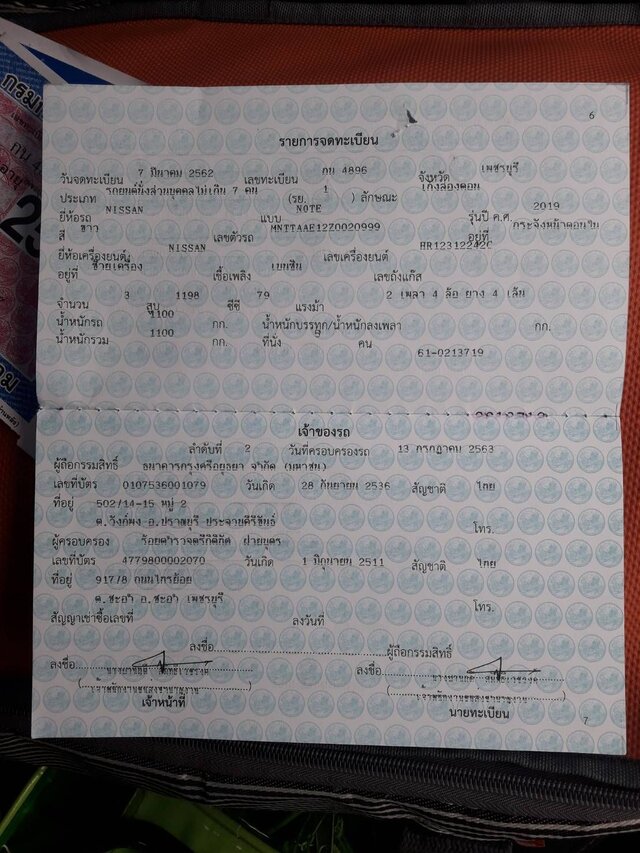 6
รายการจดทะเบียน
วันจดทะเบียน 7 มีนาคม 2562 เลขทะเบียน กน 4896 จังหวัด เพชรบุรี
ประเภท รถยนต์นั่งส่วนบุคคลไม่เกิน 7 คน (รย. 1 ) ลักษณะ เก๋งสองตอน
ยี่ห้อรถ NISSAN แบบ NOTE รุ่นปี ค.ศ. 2019
สี ขาว เลขตัวรถ MNTTAAE12Z0020999 อยู่ที่ กระจังหน้าตอนใน
ยี่ห้อเครื่องยนต์ NISSAN เลขเครื่องยนต์ HR12312242C
อยู่ที่ ซ้ายเครื่อง เชื้อเพลิง เบนซิน เลขถังแก๊ส
จำนวน 3 สูบ 1198 ซีซี 79 แรงม้า 2 เพลา 4 ล้อ ยาง 4 เส้น
น้ำหนักรถ 1100 กก. น้ำหนักบรรทุก/น้ำหนักลงเพลา กก.
น้ำหนักรวม 1100 กก. ที่นั่ง คน
61-0213719
เจ้าของรถ
ลำดับที่ 2 วันที่ครอบครองรถ 13 กรกฎาคม 2563
ผู้ถือกรรมสิทธิ์ ธนาคารกรุงศรีอยุธยา จำกัด (มหาชน)
เลขที่บัตร 0107536001079 วันเกิด 28 กันยายน 2536 สัญชาติ ไทย
ที่อยู่ 502/14-15 หมู่ 2
ต.วังก์พง อ.ปราณบุรี ประจวบคีรีขันธ์ โทร.
ผู้ครอบครอง ร้อยตำรวจตรีกิติภัค ฝ่ายบุตร
เลขที่บัตร 4779800002070 วันเกิด 1 มิถุนายน 2511 สัญชาติ ไทย
ที่อยู่ 917/8 ถนนไทรย้อย
ต.ชะอำ อ.ชะอำ เพชรบุรี โทร.
สัญญาเช่าซื้อเลขที่ ลงวันที่
ลงชื่อ ผู้ถือกรรมสิทธิ์
ลงชื่อ ลงชื่อ
เจ้าหน้าที่ นายทะเบียน
7